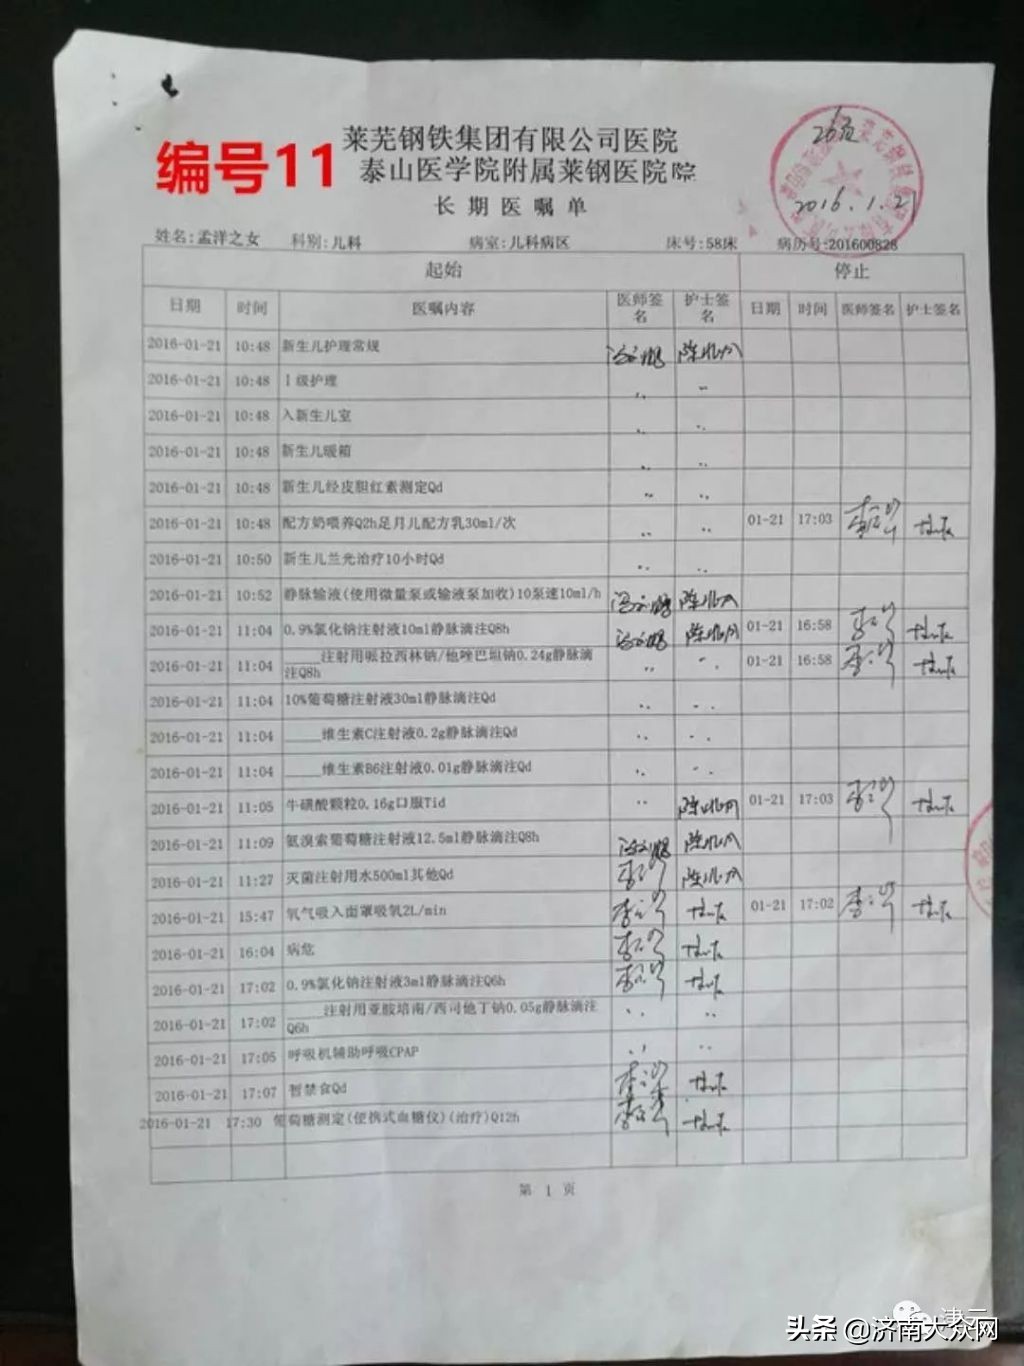 编号11
莱芜钢铁集团有限公司医院
泰山医学院附属莱钢医院院
长期医嘱单
2016.1.21
姓名:孟洋之女 科别:儿科 病室:儿科病区 床号:58床 病历号:201600828
起始 停止
日期 时间 医嘱内容 医师签名 护士签名 日期 时间 医师签名 护士签名
2016-01-21 10:48 新生儿护理常规
2016-01-21 10:48 Ⅰ级护理
2016-01-21 10:48 入新生儿室
2016-01-21 10:48 新生儿暖箱
2016-01-21 10:48 新生儿经皮胆红素测定Qd
2016-01-21 10:48 配方奶喂养Q2h足月儿配方乳30ml/次 01-21 17:03
2016-01-21 10:50 新生儿兰光治疗10小时Qd
2016-01-21 10:52 静脉输液(使用微量泵或输液泵加收)10泵速10ml/h
2016-01-21 11:04 0.9%氯化钠注射液10ml静脉滴注Q8h 01-21 16:58
2016-01-21 11:04 _____注射用哌拉西林钠/他唑巴坦钠0.24g静脉滴注Q8h 01-21 16:58
2016-01-21 11:04 10%葡萄糖注射液30ml静脉滴注Qd
2016-01-21 11:04 _____维生素C注射液0.2g静脉滴注Qd
2016-01-21 11:04 _____维生素B6注射液0.01g静脉滴注Qd
2016-01-21 11:05 牛磺酸颗粒0.16g口服Tid 01-21 17:03
2016-01-21 11:09 氨溴索葡萄糖注射液12.5ml静脉滴注Q8h
2016-01-21 11:27 灭菌注射用水500ml其他Qd
2016-01-21 15:47 氧气吸入面罩吸氧2L/min 01-21 17:02
2016-01-21 16:04 病危
2016-01-21 17:02 0.9%氯化钠注射液3ml静脉滴注Q6h
2016-01-21 17:02 _____注射用亚胺培南/西司他丁钠0.05g静脉滴注Q6h
2016-01-21 17:05 呼吸机辅助呼吸CPAP
2016-01-21 17:07 暂禁食Qd
2016-01-21 17:30 葡萄糖测定(便携式血糖仪)(治疗)Q12h
第 1 页
津云
头条 @济南大众网